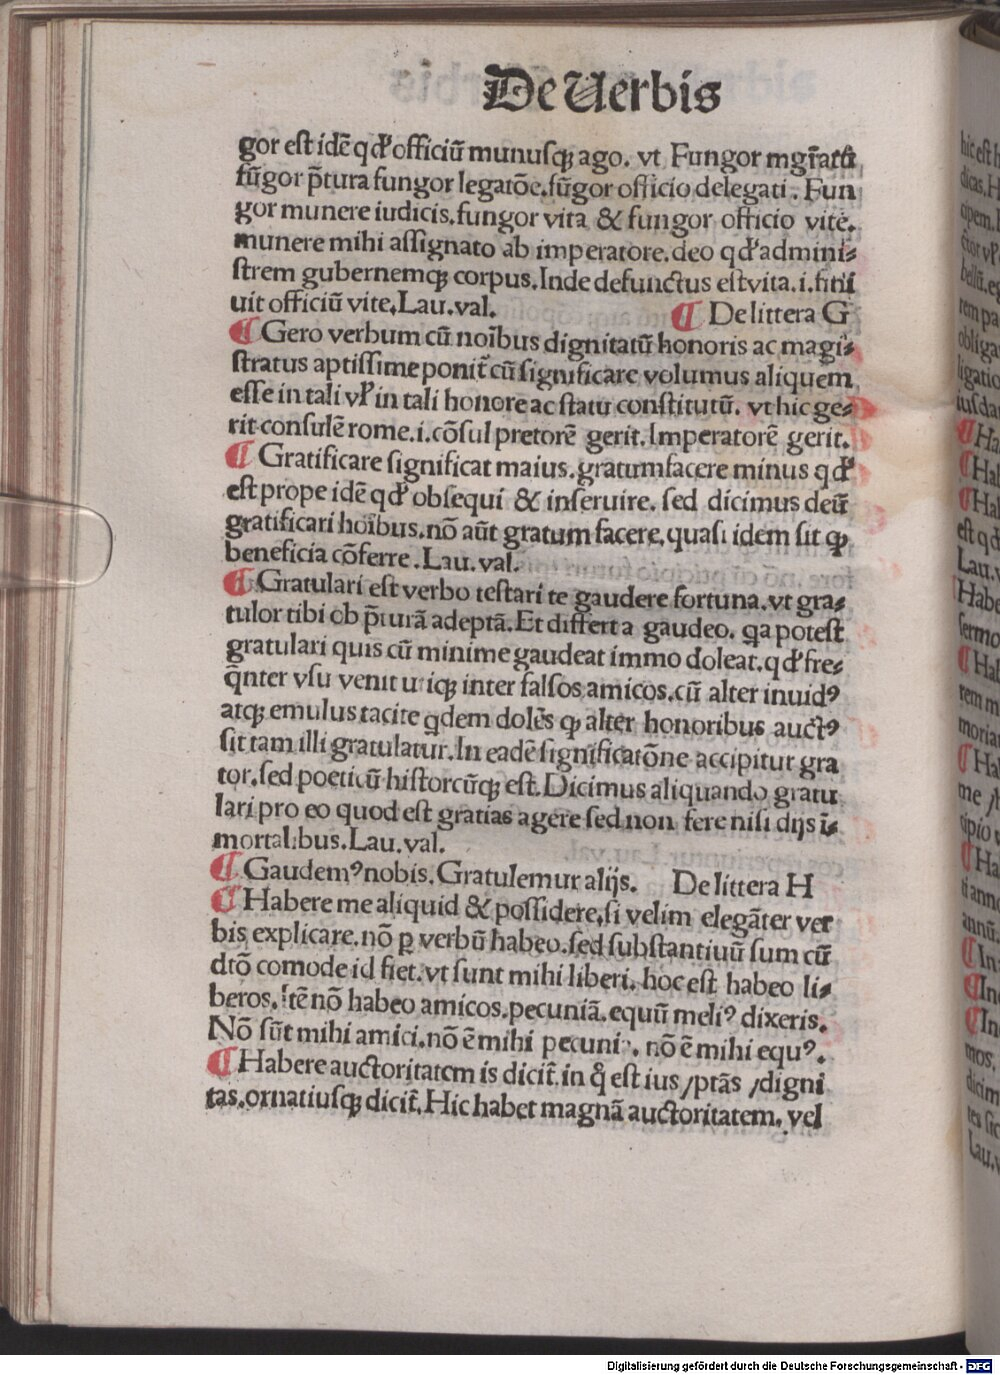 De Uerbis
gor est idē qđ officiū munusqꝫ ago. vt Fungor mgr̄atū
fūgor p̄tura fungor legatōe. fūgor officio delegati. Fun
gor munere iudicis. fungor vita & fungor officio vite.
munere mihi assignato ab imperatore. deo qđ admini⸗
strem gubernemqꝫ corpus. Inde defunctus est vita. i. finī
uit officiū vite. Lau. val. ¶ De littera G
¶ Gero verbum cū noībus dignitatū honoris ac magi⸗
stratus aptissime ponit̄ cū significare volumus aliquem
esse in tali vl̓ in tali honore ac statu constitutū. vt hic ge⸗
rit consulē rome. i. cōsul pretorē gerit. Imperatorē gerit.
¶ Gratificare significat maius. gratumfacere minus qđ
est prope idē qđ obsequi & inseruire. sed dicimus deū
gratificari hoībus. nō aūt gratum facere, quasi idem sit ꝙ
beneficia cōferre. Lau. val.
¶ Gratulari est verbo testari te gaudere fortuna. vt gra⸗
tulor tibi ob p̄turā adeptā. Et differt a gaudeo. qa potest
gratulari quis cū minime gaudeat immo doleat. qđ fre⸗
q̄nter vsu venit utiqꝫ inter falsos amicos. cū alter inuidꝰ
atqꝫ emulus tacite qdem dolēs ꝙ alter honoribus auctꝰ
sit tam illi gratulatur. In eadē significatōne accipitur gra
tor. sed poeticū historcūqꝫ est. Dicimus aliquando gratu
lari pro eo quod est gratias agere sed non fere nisi dijs ī⸗
mortalibus. Lau. val.
¶ Gaudemꝰ nobis. Gratulemur alijs. De littera H
¶ Habere me aliquid & possidere, si velim elegāter ver
bis explicare. nō ꝑ verbū habeo. sed substantiuū sum cū
dtō comode id fiet. vt sunt mihi liberi. hoc est habeo li⸗
beros. Itē nō habeo amicos. pecuniā. equū meliꝰ dixeris.
Nō sūt mihi amici. nō ē mihi pecunia. nō ē mihi equꝰ.
¶ Habere auctoritatem is dicit̄. in q̊ est ius / ptās / digni
tas. ornatiusqꝫ dicit̄. Hic habet magnā auctoritatem. vel
Digitalisierung gefördert durch die Deutsche Forschungsgemeinschaft - DFG